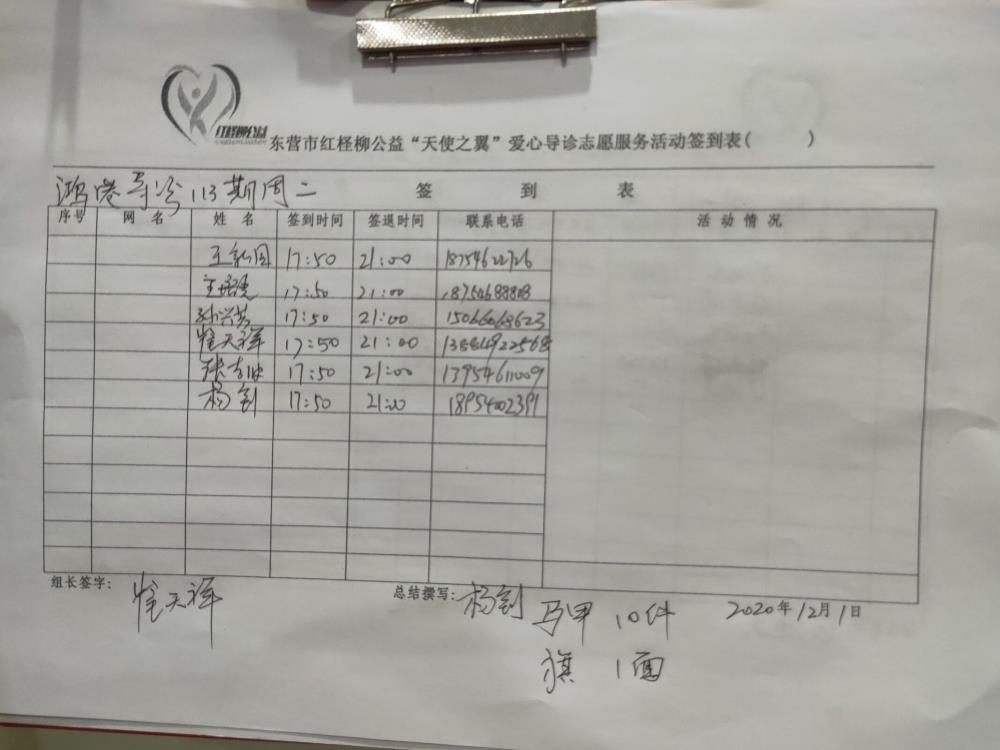 红柽柳公益
东营市红柽柳公益“天使之翼”爱心导诊志愿服务活动签到表( )
鸿港导诊113期周二 签到表
序号 网名 姓名 签到时间 签退时间 联系电话 活动情况
17:50 21:00 18754622726
17:50 21:00 18754688808
孙兴芳 17:50 21:00 15066068623
崔天祥 17:50 21:00 13884922568
17:50 21:00 13954611009
杨钊 17:50 21:00 18954002391
组长签字: 崔天祥 总结撰写: 杨钊 马甲 10件 2020年12月1日
旗 1面